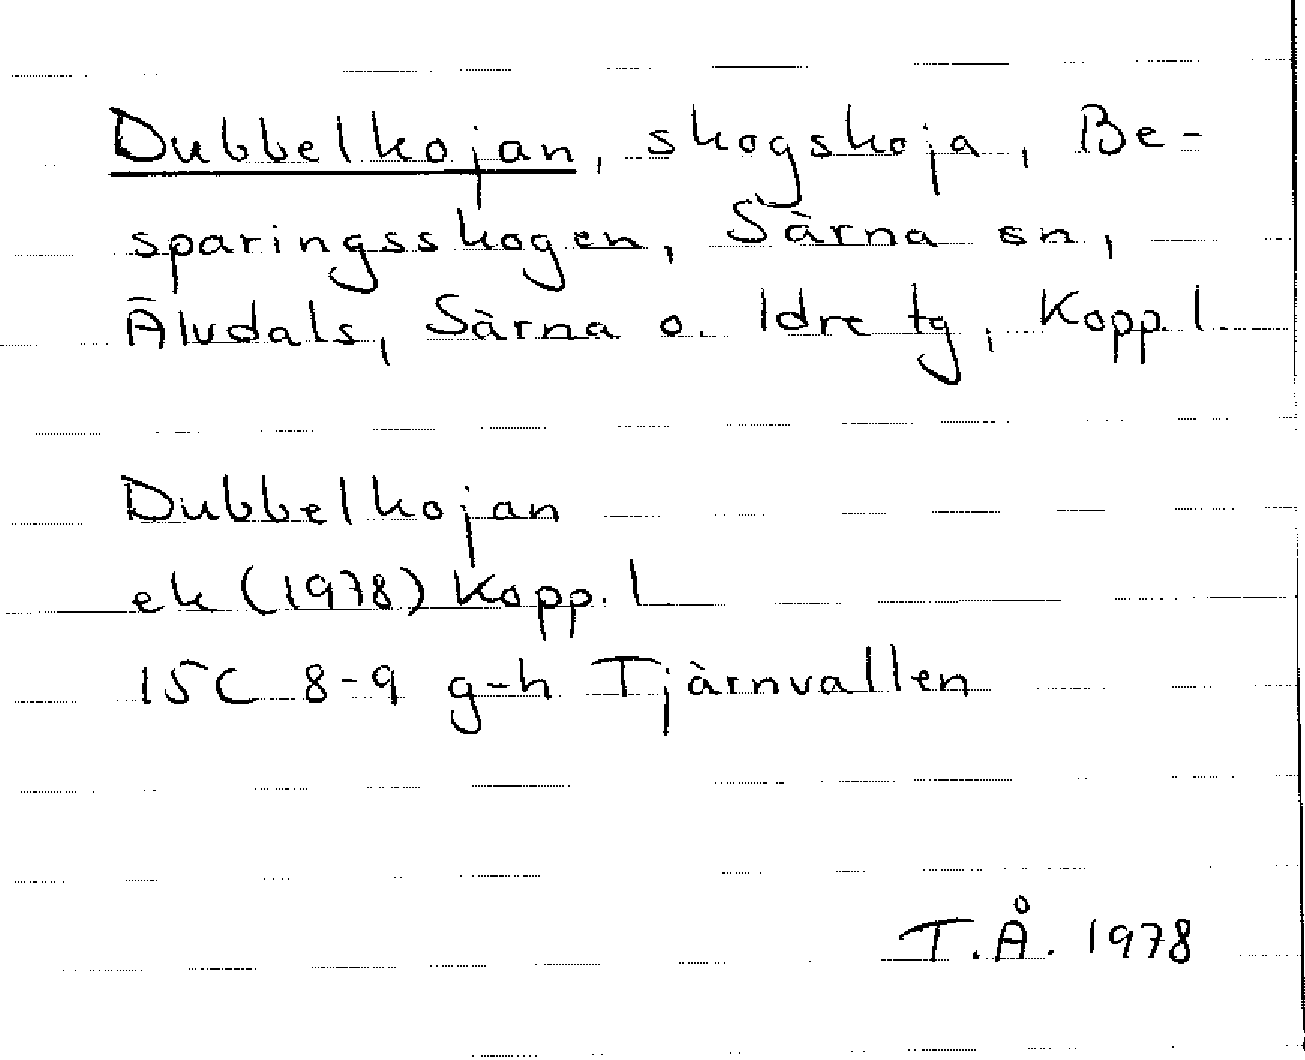 Dubbelkojan, skogskoja, Be-
sparingsskogen, Särna sn,
Älvdals, Särna o. Idre tg, Kopp. l
Dubbelkojan
ek (1978) Kopp. l
15C 8-9 g-h Tjärnvallen
T.Å. 1978